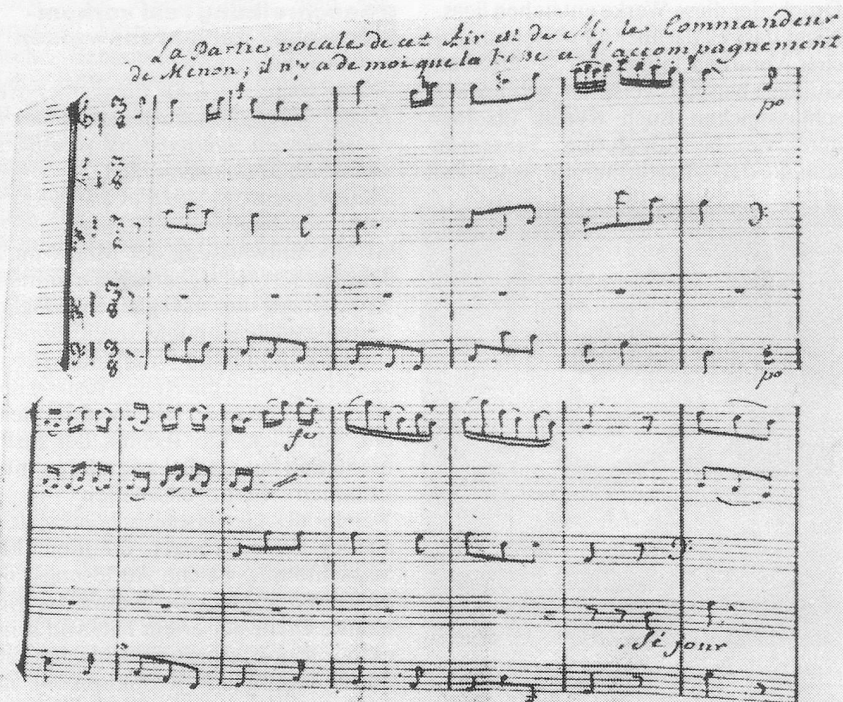 La Partie vocale de cet Air est de M. le Commandeur
de Menon; il n'y a de moi que la basse et l'accompagnement
3 8
po
3 8
3 8
3 8
3 8
po
fe
Séjour